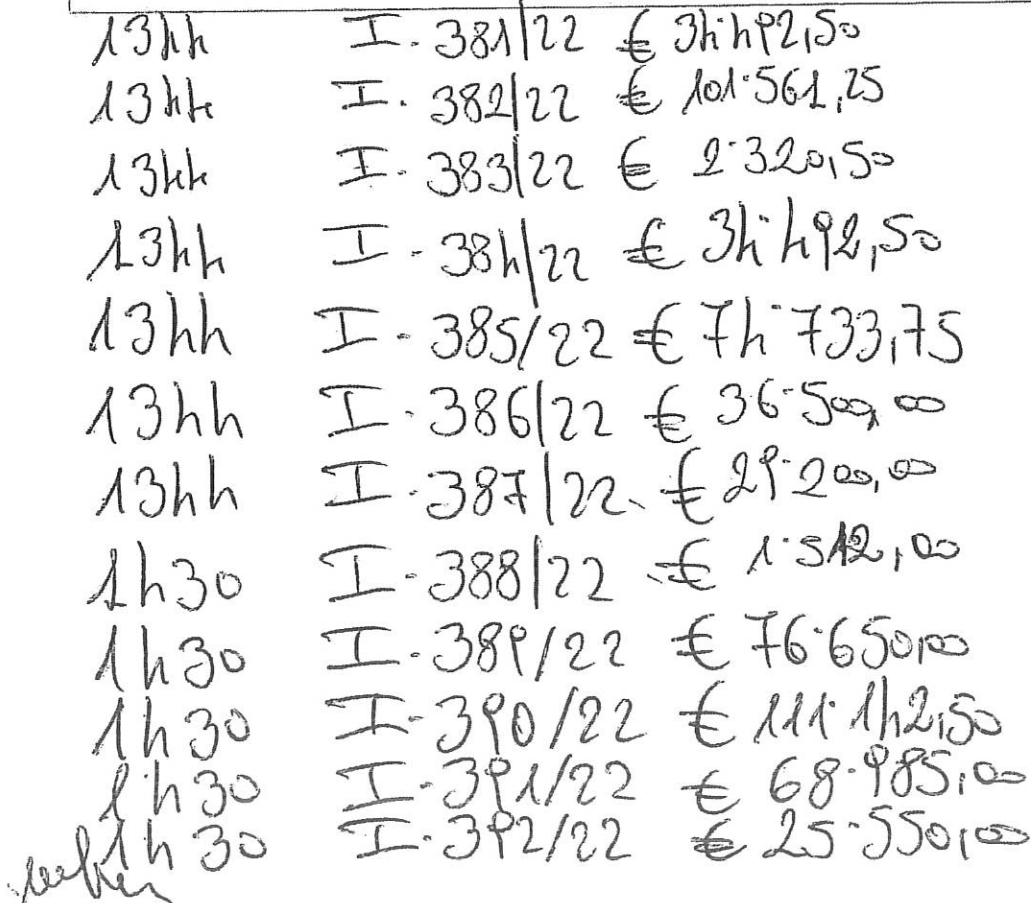 1344 I. 381/22 € 34.492,50
1344 I. 382/22 € 101.561,25
1344 I. 383/22 € 2.320,50
1344 I. 384/22 € 34.492,50
1344 I. 385/22 € 74.733,75
1344 I. 386/22 € 36.500,00
1344 I. 387/22 € 29.200,00
1430 I. 388/22 € 1.512,00
1430 I. 389/22 € 76.650,00
1430 I. 390/22 € 111.142,50
1430 I. 391/22 € 68.985,00
1430 I. 392/22 € 25.550,00